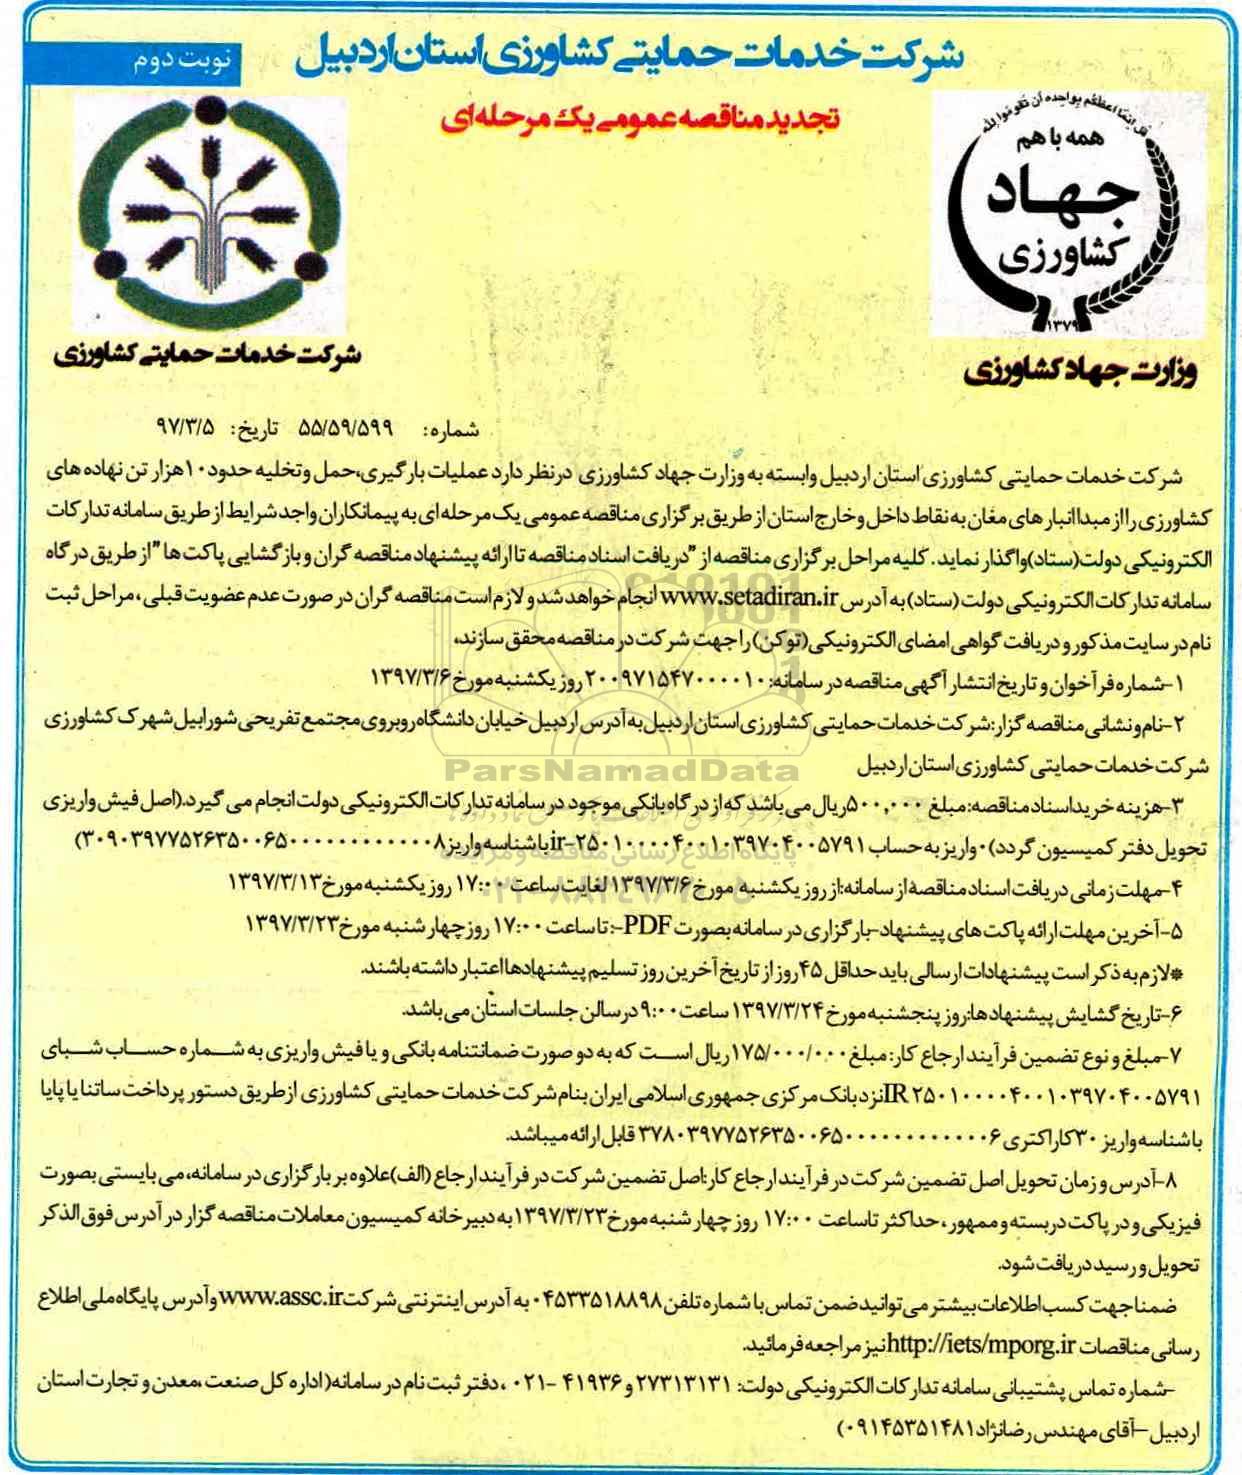 شرکت خدمات حمایتی کشاورزی استان اردبیل
نوبت دوم
تجدید مناقصه عمومی یک مرحله‌ای
قل انما اعظکم بواحده ان تقوموا لله
همه با هم
جهاد
کشاورزی
۱۳۷۹
وزارت جهاد کشاورزی
شرکت خدمات حمایتی کشاورزی
شماره: ۵۵/۵۹/۵۹۹ تاریخ: ۹۷/۳/۵
شرکت خدمات حمایتی کشاورزی استان اردبیل وابسته به وزارت جهاد کشاورزی درنظر دارد عملیات بارگیری،حمل وتخلیه حدود۱۰هزار تن نهاده های
کشاورزی رااز مبداانبارهای مغان به نقاط داخل وخارج استان از طریق برگزاری مناقصه عمومی یک مرحله ای به پیمانکاران واجد شرایط از طریق سامانه تدارکات
الکترونیکی دولت(ستاد)واگذار نماید. کلیه مراحل برگزاری مناقصه از "دریافت اسناد مناقصه تا ارائه پیشنهاد مناقصه گران و بازگشایی پاکت ها "از طریق درگاه
سامانه تدارکات الکترونیکی دولت (ستاد) به آدرس www.setadiran.ir انجام خواهد شد و لازم است مناقصه گران در صورت عدم عضویت قبلی، مراحل ثبت
نام در سایت مذکور و دریافت گواهی امضای الکترونیکی(توکن) را جهت شرکت در مناقصه محقق سازند،
۱-شماره فرآخوان و تاریخ انتشار آگهی مناقصه در سامانه: ۲۰۰۹۷۱۵۴۷۰۰۰۰۱۰ روز یکشنبه مورخ ۱۳۹۷/۳/۶
۲-نام ونشانی مناقصه گزار:شرکت خدمات حمایتی کشاورزی استان اردبیل به آدرس اردبیل خیابان دانشگاه روبروی مجتمع تفریحی شورابیل شهرک کشاورزی
شرکت خدمات حمایتی کشاورزی استان اردبیل
ParsNamadData
۳-هزینه خریداسناد مناقصه: مبلغ ۵۰۰,۰۰۰ریال می باشد که از درگاه بانکی موجود در سامانه تدارکات الکترونیکی دولت انجام می گیرد.(اصل فیش واریزی
تحویل دفتر کمیسیون گردد)۰واریز به حساب ir-۲۵۰۱۰۰۰۰۴۰۰۱۰۳۹۷۰۴۰۰۵۷۹۱باشناسه واریز۳۰۹۰۳۹۷۷۵۲۶۳۵۰۰۶۵۰۰۰۰۰۰۰۰۰۰۰۰۸)
پایگاه اطلاع رسانی مناقصه و مزایده
۴-مهلت زمانی دریافت اسناد مناقصه از سامانه:از روز یکشنبه مورخ ۱۳۹۷/۳/۶ لغایت ساعت ۱۷:۰۰ روز یکشنبه مورخ ۱۳۹۷/۳/۱۳
۵-آخرین مهلت ارائه پاکت های پیشنهاد-بارگزاری در سامانه بصورت PDF-: تا ساعت ۱۷:۰۰ روز چهارشنبه مورخ ۱۳۹۷/۳/۲۳
*لازم به ذکر است پیشنهادات ارسالی باید حداقل ۴۵روز از تاریخ آخرین روز تسلیم پیشنهادها اعتبار داشته باشند.
۶-تاریخ گشایش پیشنهادها:روز پنجشنبه مورخ ۱۳۹۷/۳/۲۴ ساعت ۹:۰۰ در سالن جلسات استان می باشد.
۷-مبلغ و نوع تضمین فرآیند ارجاع کار: مبلغ ۱۷۵/۰۰۰/۰۰۰ ریال است که به دو صورت ضمانتنامه بانکی و یا فیش واریزی به شماره حساب شبای
IR ۲۵۰۱۰۰۰۰۴۰۰۱۰۳۹۷۰۴۰۰۵۷۹۱نزد بانک مرکزی جمهوری اسلامی ایران بنام شرکت خدمات حمایتی کشاورزی ازطریق دستور پرداخت ساتنا یا پایا
با شناسه واریز ۳۰کاراکتری ۳۷۸۰۳۹۷۷۵۲۶۳۵۰۰۶۵۰۰۰۰۰۰۰۰۰۰۰۰۶ قابل ارائه میباشد.
۸-آدرس و زمان تحویل اصل تضمین شرکت در فرآیند ارجاع کار:اصل تضمین شرکت در فرآیند ارجاع (الف)علاوه بر بارگزاری در سامانه، می بایستی بصورت
فیزیکی و در پاکت دربسته و ممهور، حداکثر تا ساعت ۱۷:۰۰ روز چهارشنبه مورخ ۱۳۹۷/۳/۲۳ به دبیرخانه کمیسیون معاملات مناقصه گزار در آدرس فوق الذکر
تحویل و رسید دریافت شود.
ضمنا جهت کسب اطلاعات بیشتر می توانید ضمن تماس با شماره تلفن ۰۴۵۳۳۵۱۸۸۹۸ به آدرس اینترنتی شرکت www.assc.ir وآدرس پایگاه ملی اطلاع
رسانی مناقصات http://iets/mporg.ir نیز مراجعه فرمائید.
-شماره تماس پشتیبانی سامانه تدارکات الکترونیکی دولت: ۲۷۳۱۳۱۳۱ و ۴۱۹۳۶ -۰۲۱ ، دفتر ثبت نام در سامانه( اداره کل صنعت ،معدن و تجارت استان
اردبیل –آقای مهندس رضانژاد ۰۹۱۴۵۳۵۱۴۸۱)